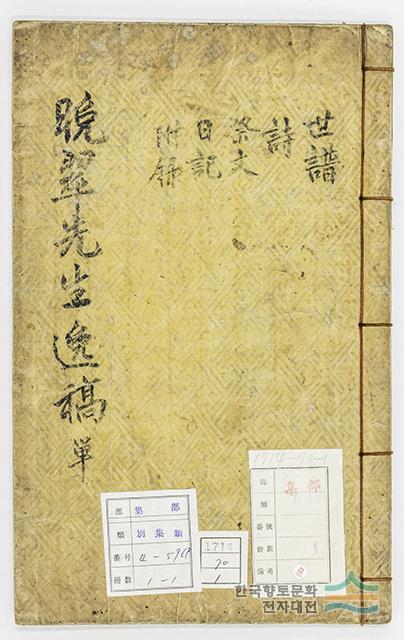 世譜
詩
祭文
日記
附錄
晩翠先生逸稿 単
部 集 部
類 別集類
番号
冊数 1-1
1714
70
1
1714-70-1
部 集部
類
番號
冊數 1
備考
한국향토문화
전자대전